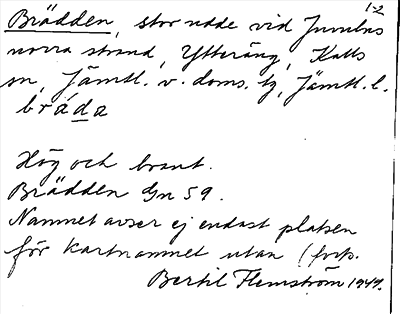 1-2
Brädden, stor udde vid Juvulns
norra strand, Ytteräng, Kalls
sn, Jämtl. v. doms. tg, Jämtl. l.
bráda
Hög och brant.
Brädden Gn 59.
Namnet avser ej endast platsen
för kartnamnet utan (forts.
Bertil Flemström 1947.